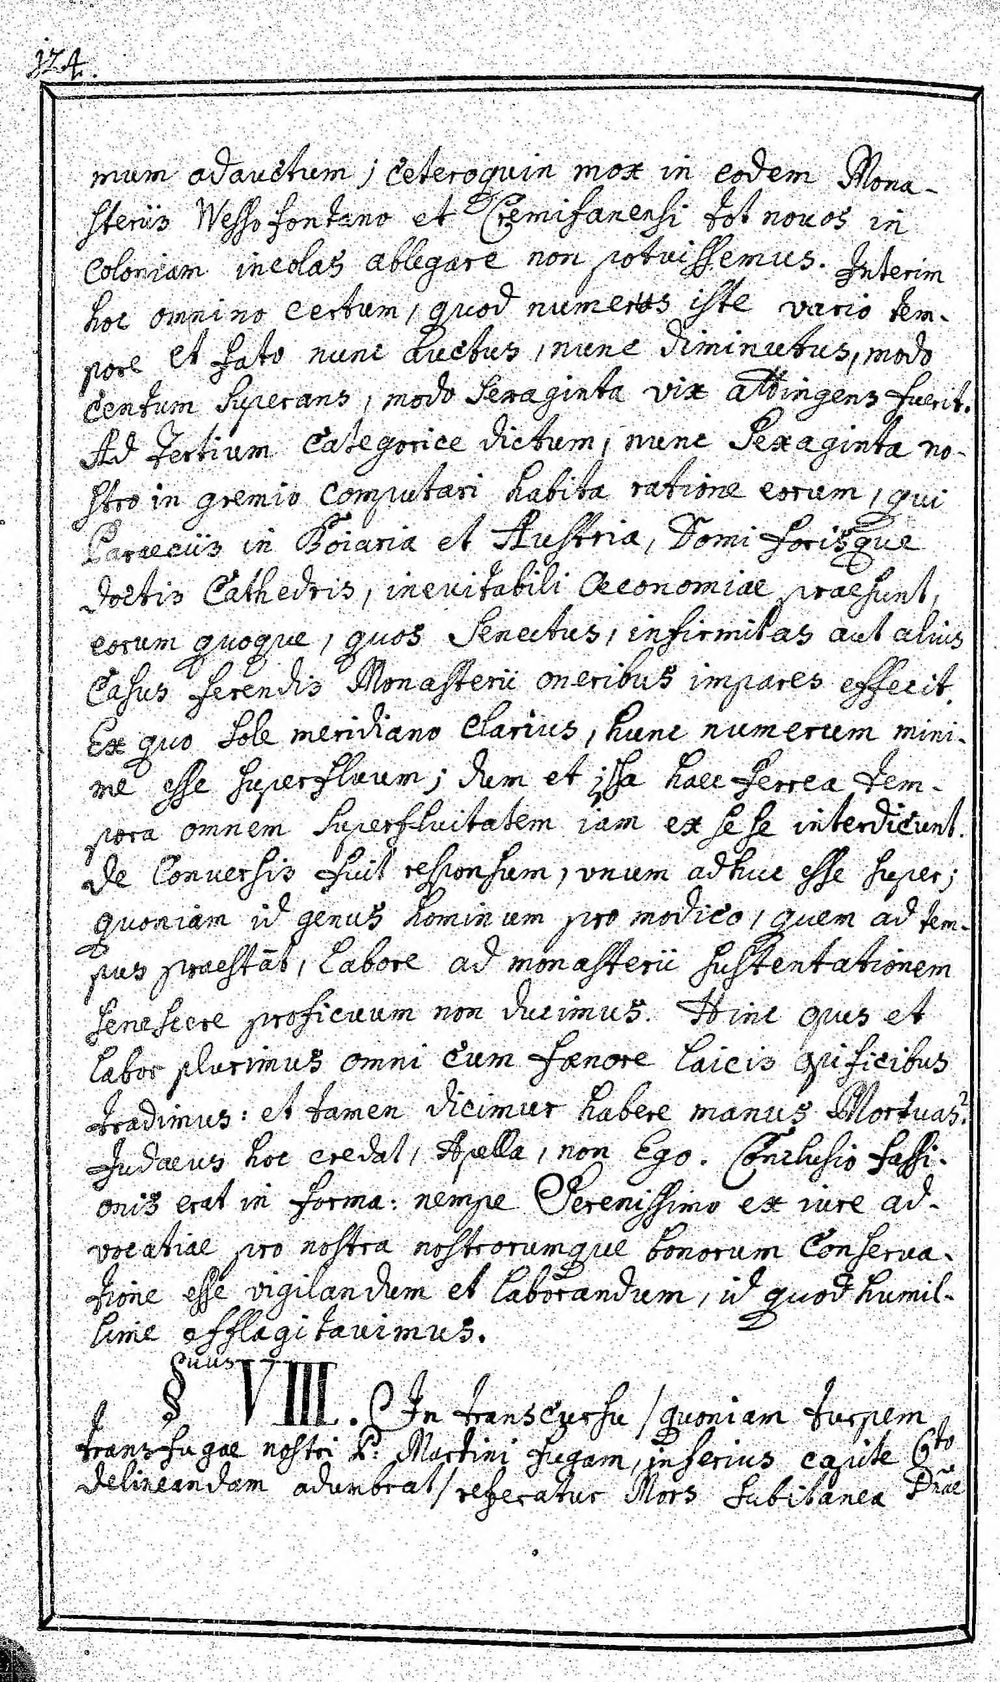 124.
mum adauctum; ceteroquin mox in eodem Mona-
steriis Wessofontano et Cremifanensi tot novos in
Coloniam incolas ablegare non potuissemus. Interim
hoc omnino certum, quod numerus iste vario tem-
pore et fato nunc auctus, nunc diminutus, modo
Centum Superans, modo Sexaginta vix attingens fuerit.
Ad Tertium Categorice dictum, nunc Sexaginta no-
stro in gremio computari habita ratione eorum, qui
Paraeciis in Boiaria et Austria, Domi forisque
doctis Cathedris, inevitabili Oeconomiae praesunt,
eorum quoque, quos Senectus, infirmitas aut alius
Casus ferendis Monasterii oneribus impares effecit.
Ex quo Sole meridiano Clarius, hunc numerum mini-
me esse superfluum; dum et ipsa haec ferrea tem-
pora omnem Superfluitatem iam ex se se interdicunt.
De Conversis fuit responsum, vnum adhuc esse super;
quoniam id genus hominum pro modico, quem ad tem-
pus praestāt, Labore ad monasterii sustentationem
senescere proficuum non ducimus. Hinc opus et
labor plurimus omni cum foenore laicis opificibus
tradimus: et tamen dicimur habere manus Mortuas?
Judaeus hoc credat, Apella, non Ego. Conclusio fassi-
onis erat in forma: nempe Serenissimo ex iure ad-
vocatiae pro nostra nostrorumque bonorum Conserva-
tione esse vigilandum et laborandum, id quod humil-
lime efflagitavimus.
§vus VIII. In transcursu /quoniam turpem
transfugae nostri P. Martini fugam, inferius capite 6to
delineandam adumbrat/ referatur Mors Subitanea Dnae